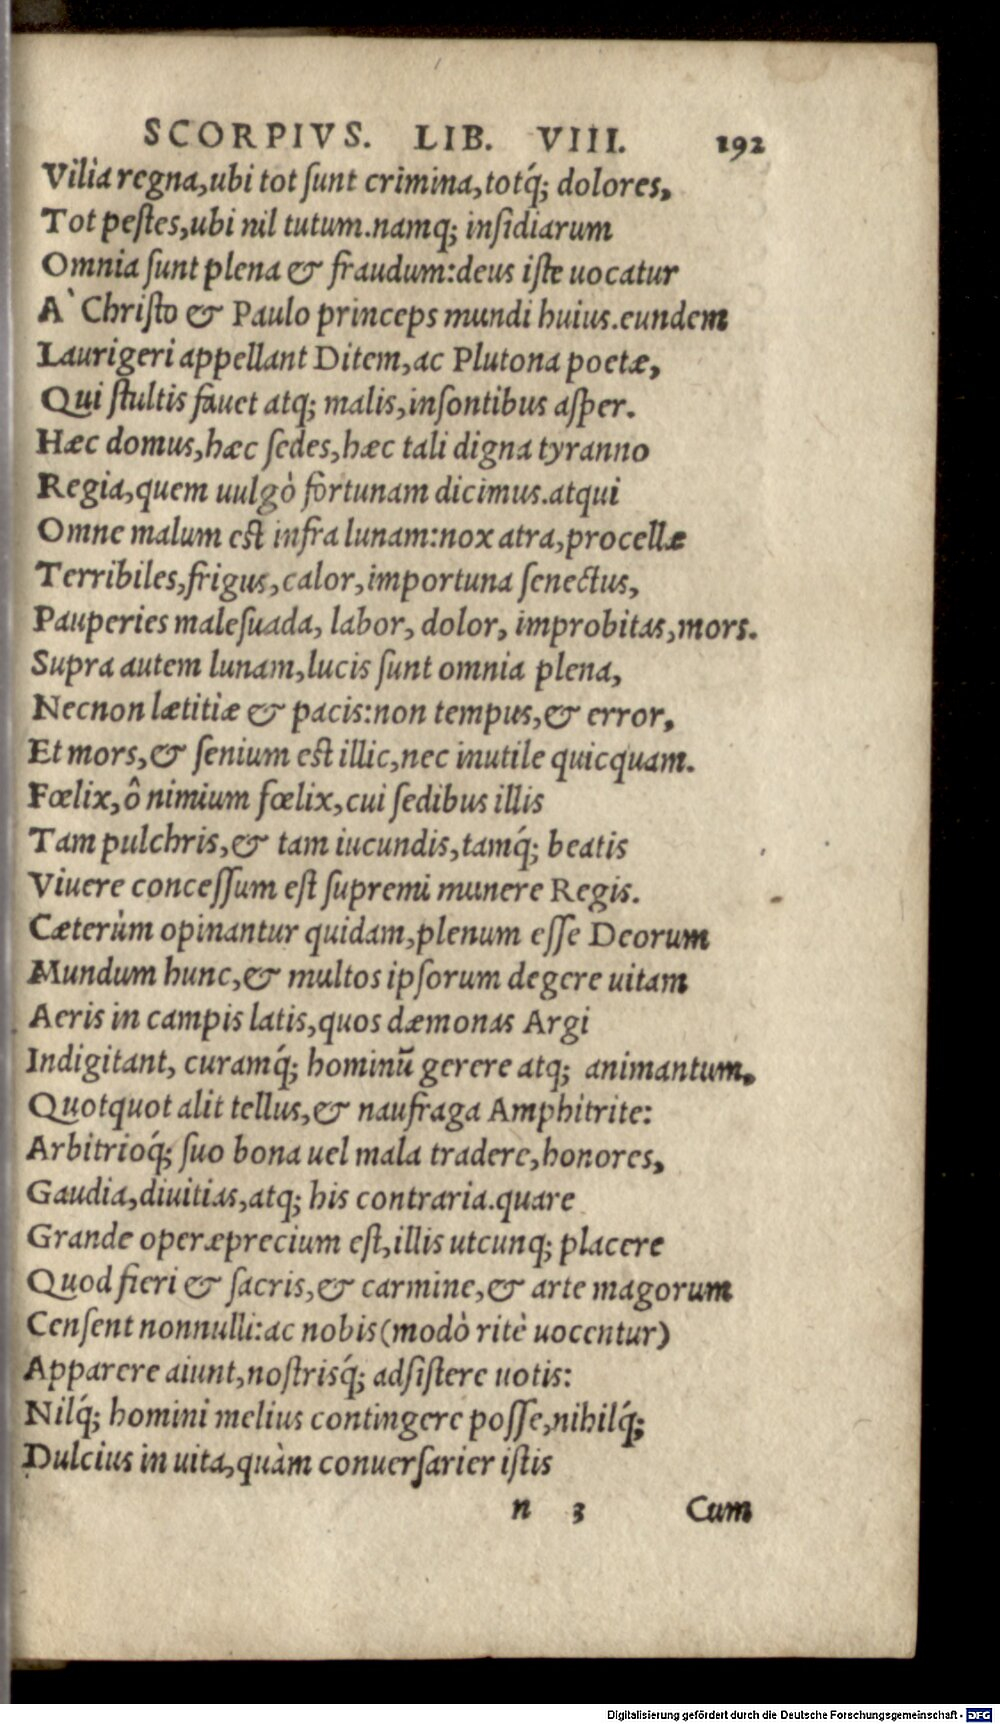 SCORPIVS. LIB. VIII. 192
Vilia regna,ubi tot ſunt crimina,totq́; dolores,
Tot peſtes,ubi nil tutum.namq; inſidiarum
Omnia ſunt plena & fraudum:deus iſte uocatur
A` Chriſto & Paulo princeps mundi huius.eundem
Laurigeri appellant Ditem,ac Plutona poetæ,
Qui ſtultis fauet atq; malis,inſontibus aſper.
Hæc domus,hæc ſedes,hæc tali digna tyranno
Regia,quem uulgò fortunam dicimus.atqui
Omne malum eſt infra lunam:nox atra,procellæ
Terribiles,frigus,calor,importuna ſenectus,
Pauperies maleſuada, labor, dolor, improbitas,mors.
Supra autem lunam,lucis ſunt omnia plena,
Necnon lætitiæ & pacis:non tempus,& error,
Et mors,& ſenium eſt illic,nec inutile quicquam.
Fœlix,ô nimium fœlix,cui ſedibus illis
Tam pulchris,& tam iucundis,tamq́; beatis
Viuere conceſſum eſt ſupremi munere Regis.
Cæterùm opinantur quidam,plenum eſſe Deorum
Mundum hunc,& multos ipſorum degere uitam
Aeris in campis latis,quos dæmonas Argi
Indigitant, curamq́; hominū gerere atq; animantum,
Quotquot alit tellus,& naufraga Amphitrite:
Arbitrioq́; ſuo bona uel mala tradere,honores,
Gaudia,diuitias,atq; his contraria.quare
Grande operæprecium eſt,illis utcunq; placere
Quod fieri & ſacris,& carmine,& arte magorum
Cenſent nonnulli:ac nobis(modò ritè uocentur)
Apparere aiunt,noſtrisq́; adſiſtere uotis:
Nilq́; homini melius contingere poſſe,nihilq́;
Dulcius in uita,quàm conuerſarier iſtis
n 3 Cum
Digitalisierung gefördert durch die Deutsche Forschungsgemeinschaft - DFG